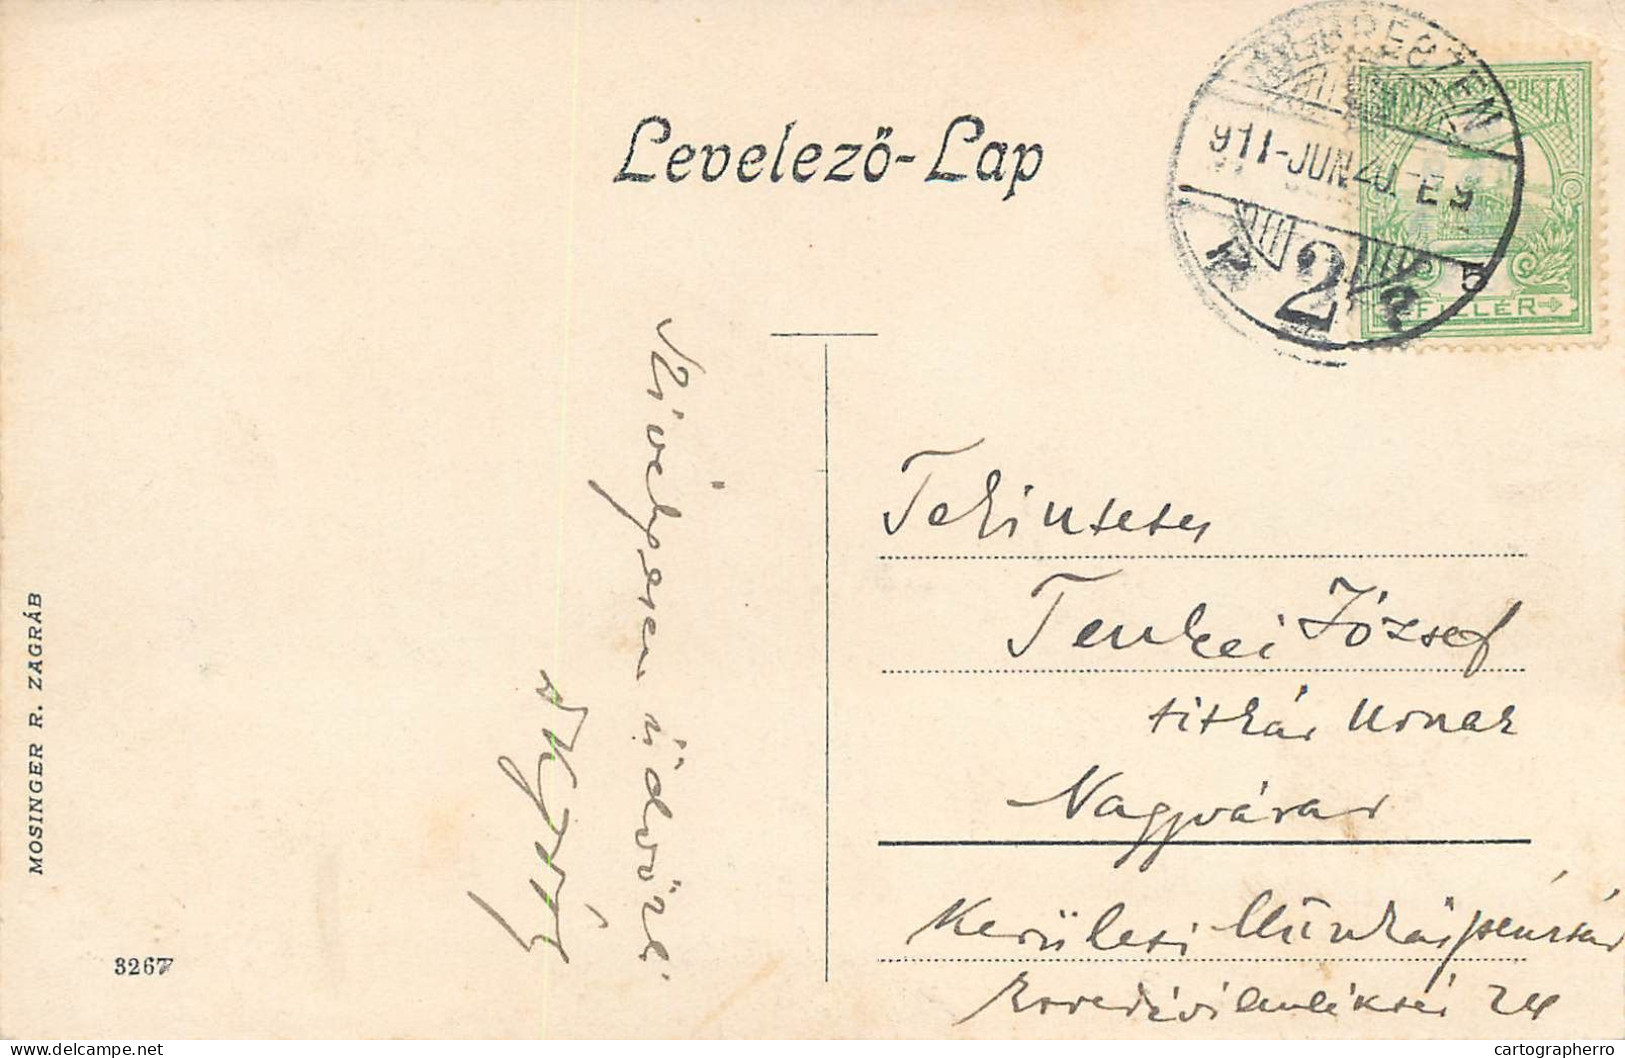 Levelező-Lap
DEBRECZEN
911-JUN 20.-E 9
2
MAGYAR POSTA
5
FILLÉR
Szívélyesen üdvözli
Tekintetes
Tenkei József
titkár Urnak
Nagyvárad
Kerületi Munkáspénztár
24
MOSINGER R. ZAGRÁB
3267
delcampe.net
cartographerro